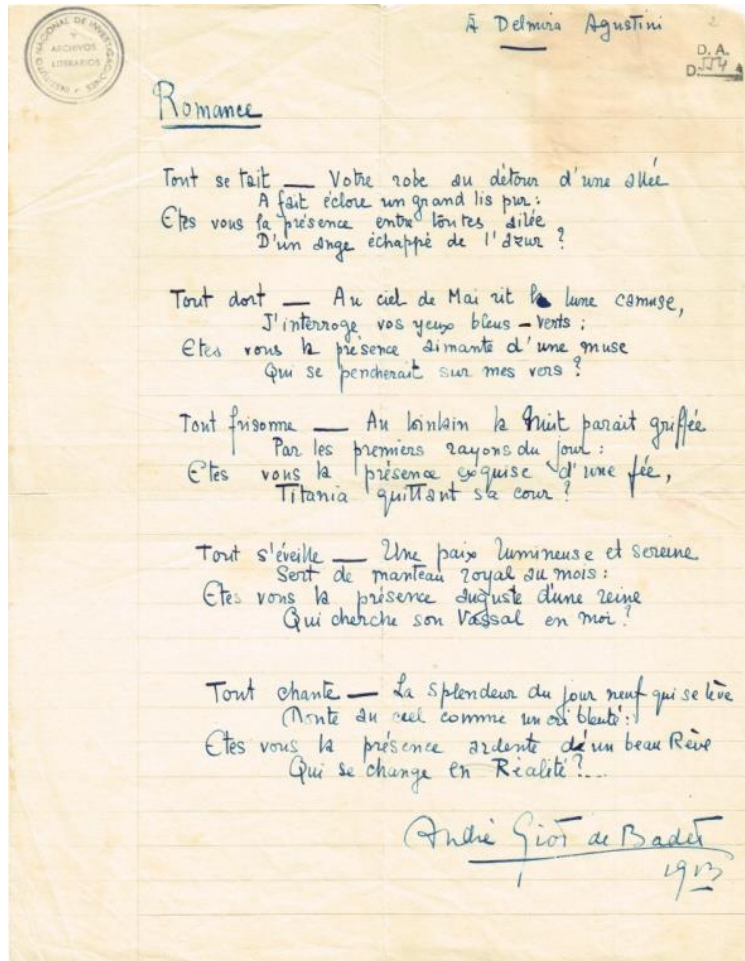 À Delmira Agustini
2
INSTITUTO NACIONAL DE INVESTIGACIONES
Y
ARCHIVOS
LITERARIOS
D. A.
D.
Romance
Tout se tait — Votre robe au détour d'une allée
A fait éclore un grand lis pur :
Etes vous la présence entre toutes ailée
D'un ange échappé de l'azur ?
Tout dort — Au ciel de Mai rit la lune camuse,
J'interroge vos yeux bleus - verts ;
Etes vous la présence aimante d'une muse
Qui se pencherait sur mes vers ?
Tout frisonne — Au lointain la Nuit parait griffée
Par les premiers rayons du jour :
Etes vous la présence exquise d'une fée,
Titania quittant sa cour ?
Tout s'éveille — Une paix lumineuse et sereine
Sert de manteau royal au mois :
Etes vous la présence auguste d'une reine
Qui cherche son Vassal en moi ?
Tout chante — La Splendeur du jour neuf qui se lève
Monte au ciel comme un cri bleuté :
Etes vous la présence ardente d'un beau Rêve
Qui se change en Réalité ?...
André Giot de Badet
1913